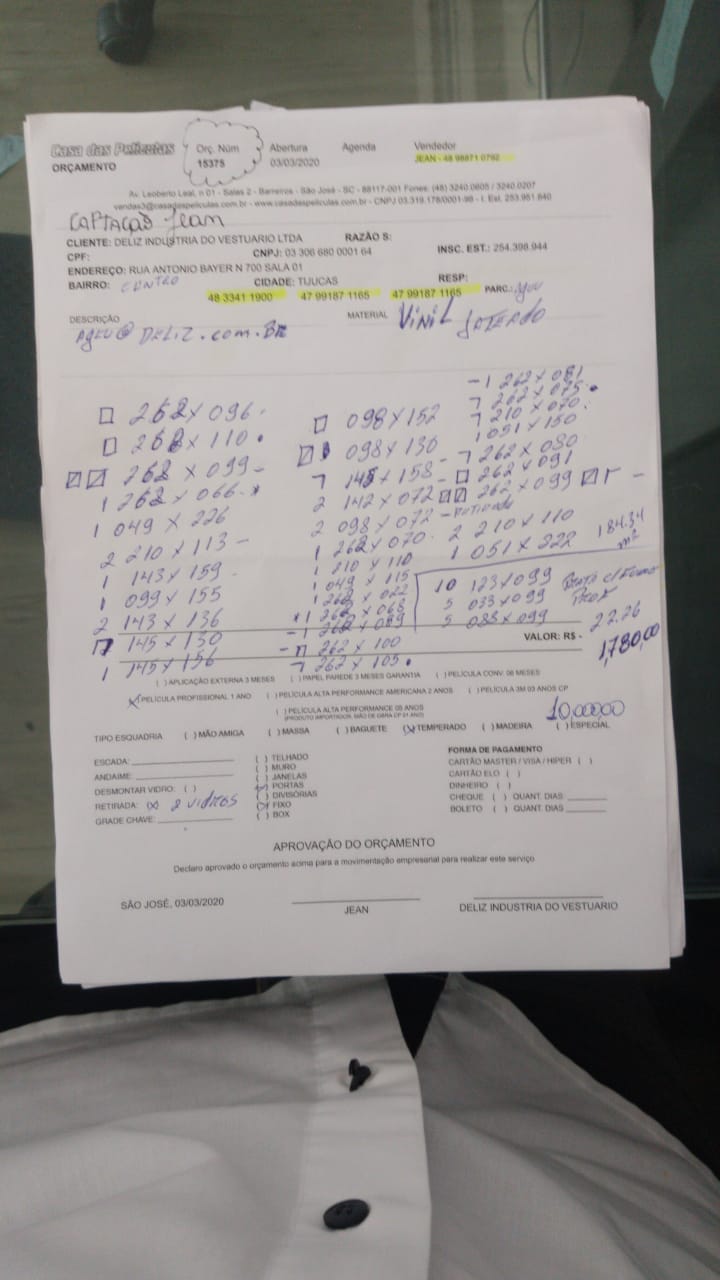 Casa das Películas
ORÇAMENTO
Orç. Núm
15375
Abertura
03/03/2020
Agenda
Vendedor
JEAN - 48 98871 0792
Av. Leoberto Leal, n 01 - Salas 2 - Barreiros - São José - SC - 88117-001 Fones: (48) 3240.0605 / 3240.0207
vendas3@casadaspeliculas.com.br - www.casadaspeliculas.com.br - CNPJ 03.319.178/0001-98 - I. Est. 253.951.640
CAPTAÇAO Jean
CLIENTE: DELIZ INDUSTRIA DO VESTUARIO LTDA RAZÃO S:
CPF: CNPJ: 03 306 680 0001 64 INSC. EST.: 254.398.944
ENDEREÇO: RUA ANTONIO BAYER N 700 SALA 01
BAIRRO: CENTRO CIDADE: TIJUCAS RESP: PARC.:
48 3341 1900 47 99187 1165 47 99187 1165
DESCRIÇÃO MATERIAL VINIL
@DELIZ.com.BR
262 x 096
262 x 110
262 x 099
1 262 x 066
1 049 x 226
2 210 x 113
1 143 x 159
1 099 x 155
2 143 x 136
145 x 130
1 145 x 156
098 x 152
098 x 130
145 x 158
2 142 x 072
2 098 x 072 - Retirado
1 262 x 070
1 210 x 110
1 049 x 115
1 262 x 022
1 262 x 068
1 262 x 089
262 x 100
262 x 105
1 262 x 081
262 x 075
210 x 070
1 051 x 150
262 x 080
262 x 091
262 x 099
2 210 x 110
1 051 x 222
184.34
m²
10 123 x 099
5 033 x 099
5 083 x 099
22.26
VALOR: R$ - 1,780,00
( ) APLICAÇÃO EXTERNA 3 MESES ( ) PAPEL PAREDE 3 MESES GARANTIA ( ) PELÍCULA CONV. 06 MESES
(X) PELÍCULA PROFISSIONAL 1 ANO ( ) PELÍCULA ALTA PERFORMANCE AMERICANA 2 ANOS ( ) PELÍCULA 3M 03 ANOS CP
( ) PELÍCULA ALTA PERFORMANCE 05 ANOS
(PRODUTO IMPORTADOR, MÃO DE OBRA CP 01 ANO)
10,000,00
TIPO ESQUADRIA ( ) MÃO AMIGA ( ) MASSA ( ) BAGUETE (X) TEMPERADO ( ) MADEIRA ( ) ESPECIAL
ESCADA:
ANDAIME:
DESMONTAR VIDRO: ( )
RETIRADA: (X) 2 vidros
GRADE CHAVE:
( ) TELHADO
( ) MURO
( ) JANELAS
(X) PORTAS
( ) DIVISÓRIAS
(X) FIXO
( ) BOX
FORMA DE PAGAMENTO
CARTÃO MASTER / VISA / HIPER ( )
CARTÃO ELO ( )
DINHEIRO ( )
CHEQUE ( ) QUANT. DIAS
BOLETO ( ) QUANT. DIAS
APROVAÇÃO DO ORÇAMENTO
Declaro aprovado o orçamento acima para a movimentação empresarial para realizar este serviço
SÃO JOSÉ, 03/03/2020
JEAN
DELIZ INDUSTRIA DO VESTUARIO